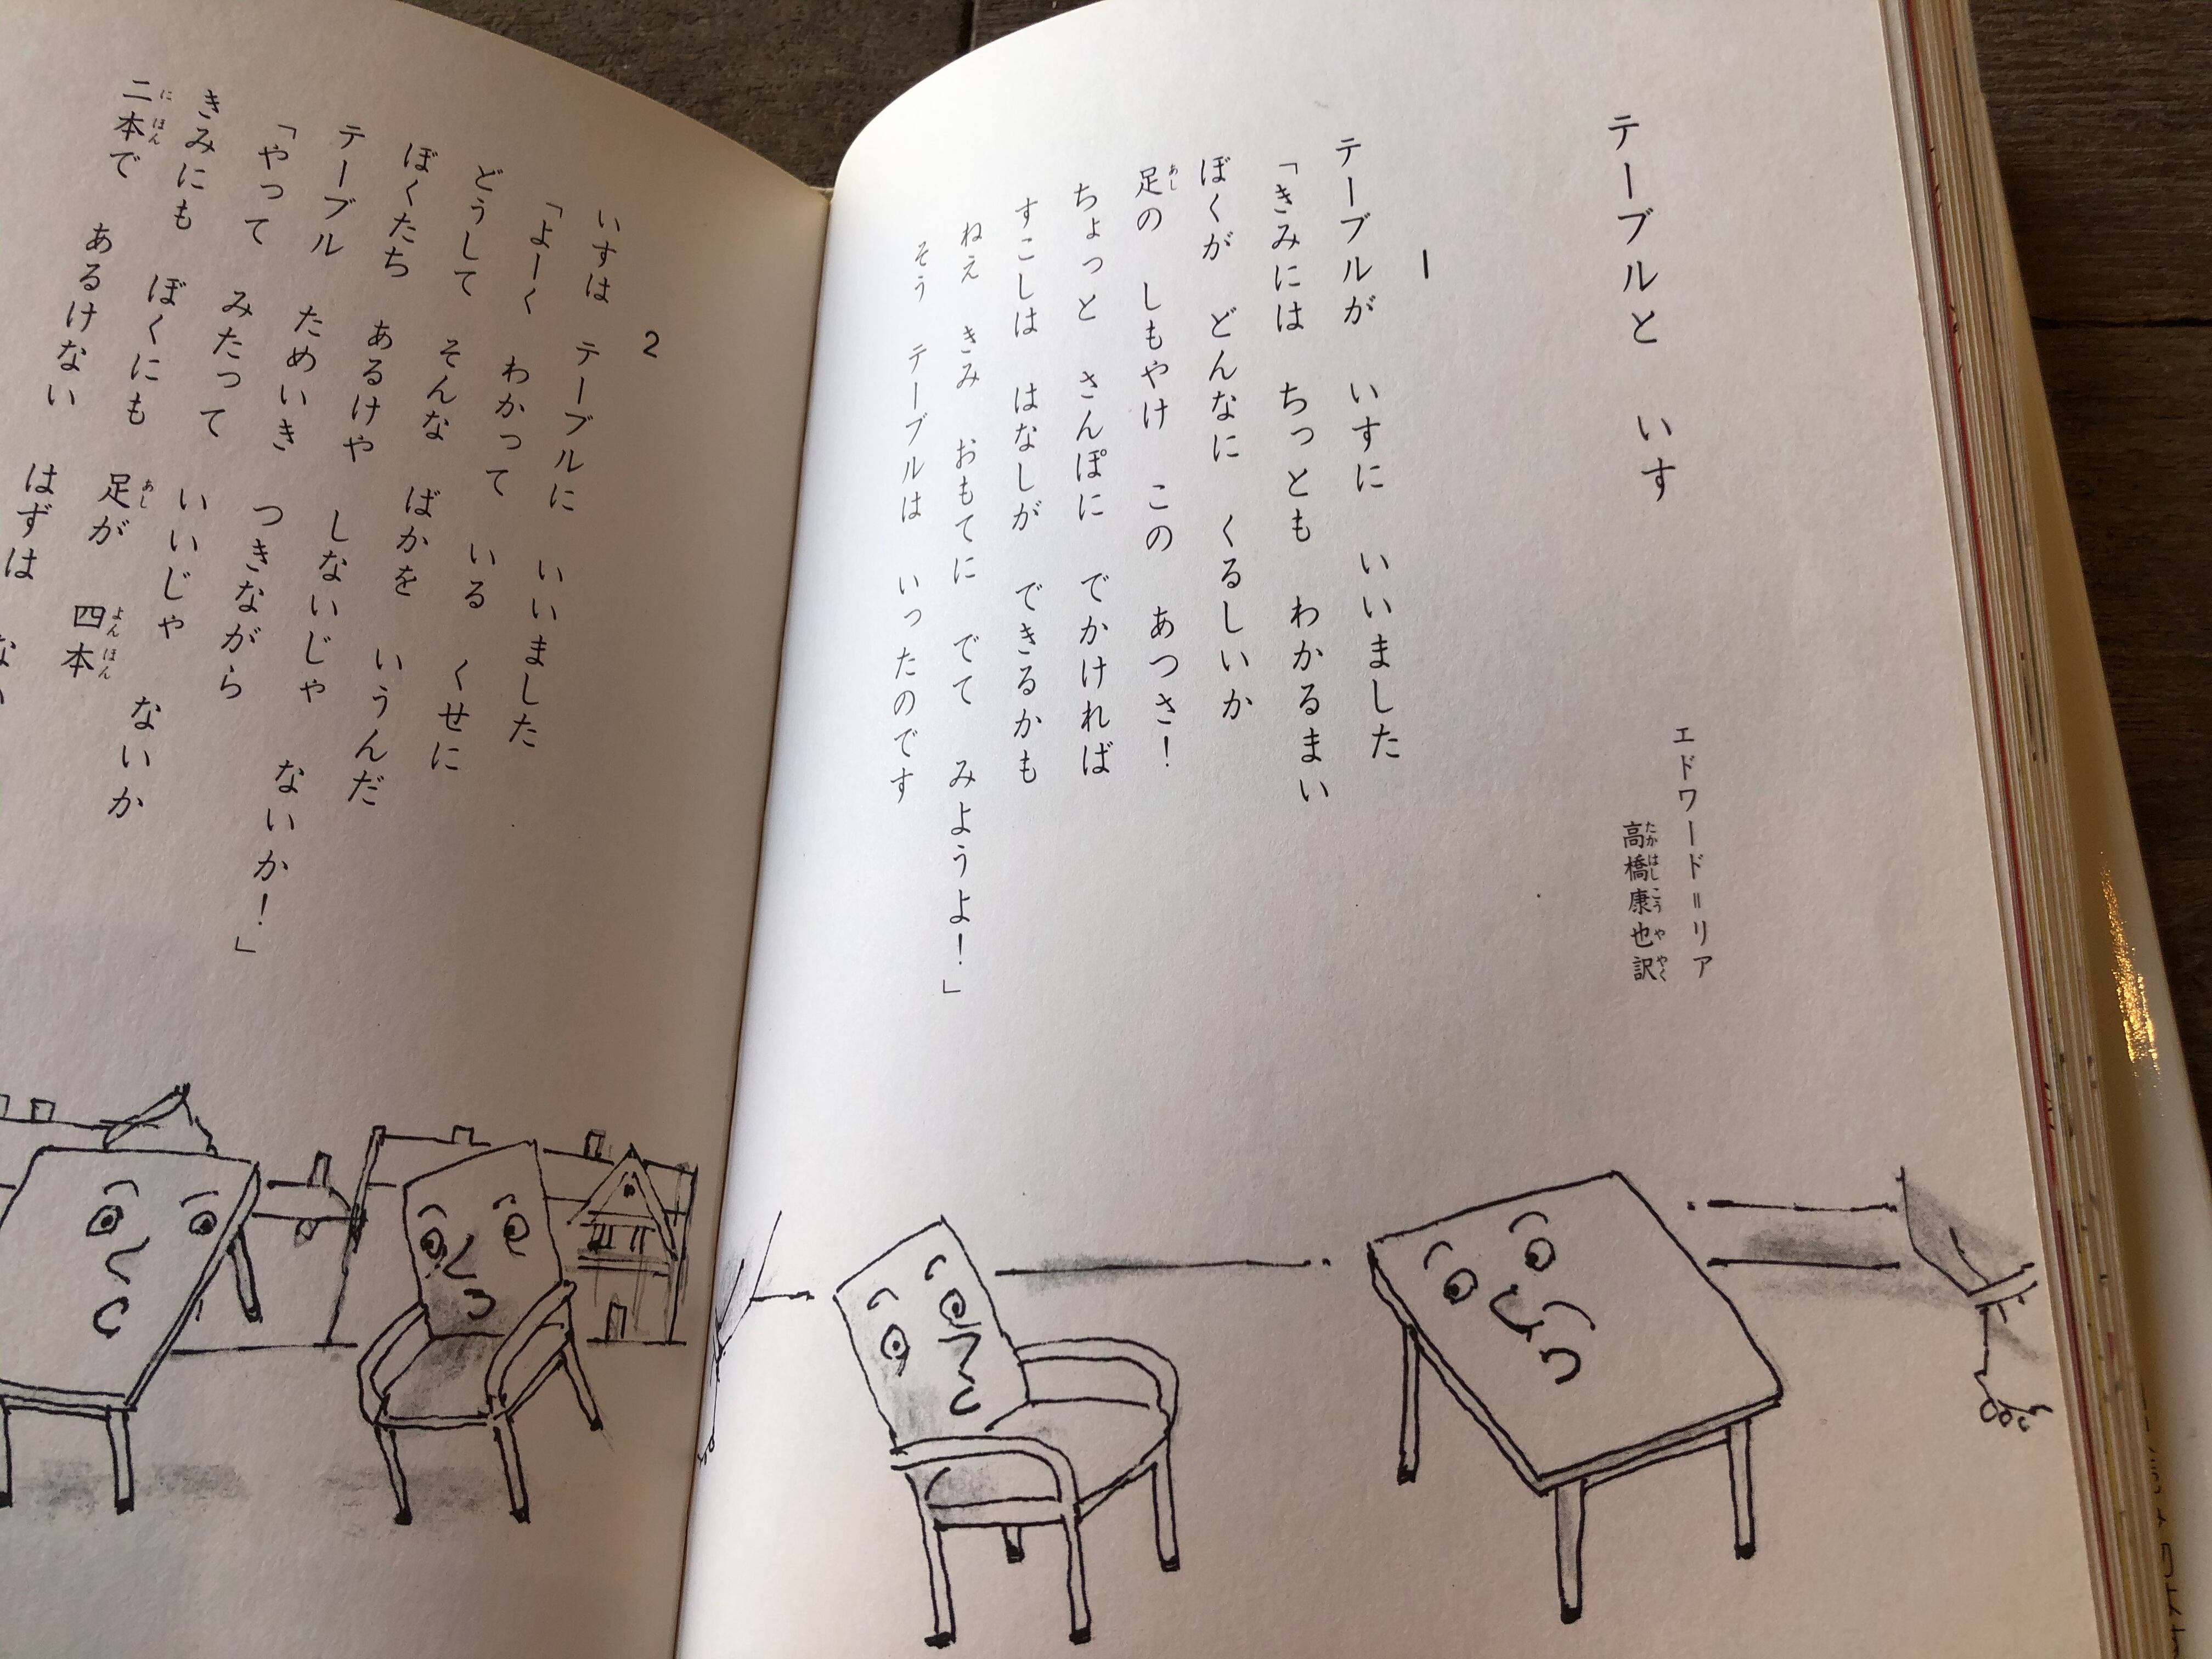 テーブルと　いす
エドワード＝リア
高橋康也訳
1
テーブルが　いすに　いいました
「きみには　ちっとも　わかるまい
ぼくが　どんなに　くるしいか
足の　しもやけ　この　あつさ！
ちょっと　さんぽに　でかければ
すこしは　はなしが　できるかも
ねえ　きみ　おもてに　でて　みようよ！」
そう　テーブルは　いったのです
2
いすは　テーブルに　いいました
「よーく　わかって　いる　くせに
どうして　そんな　ばかを　いうんだ
ぼくたち　あるけや　しないじゃ　ないか！」
テーブル　ためいき　つきながら
「やって　みたって　いいじゃ　ないか
きみにも　ぼくにも　足が　四本
二本で　あるけない　はずは